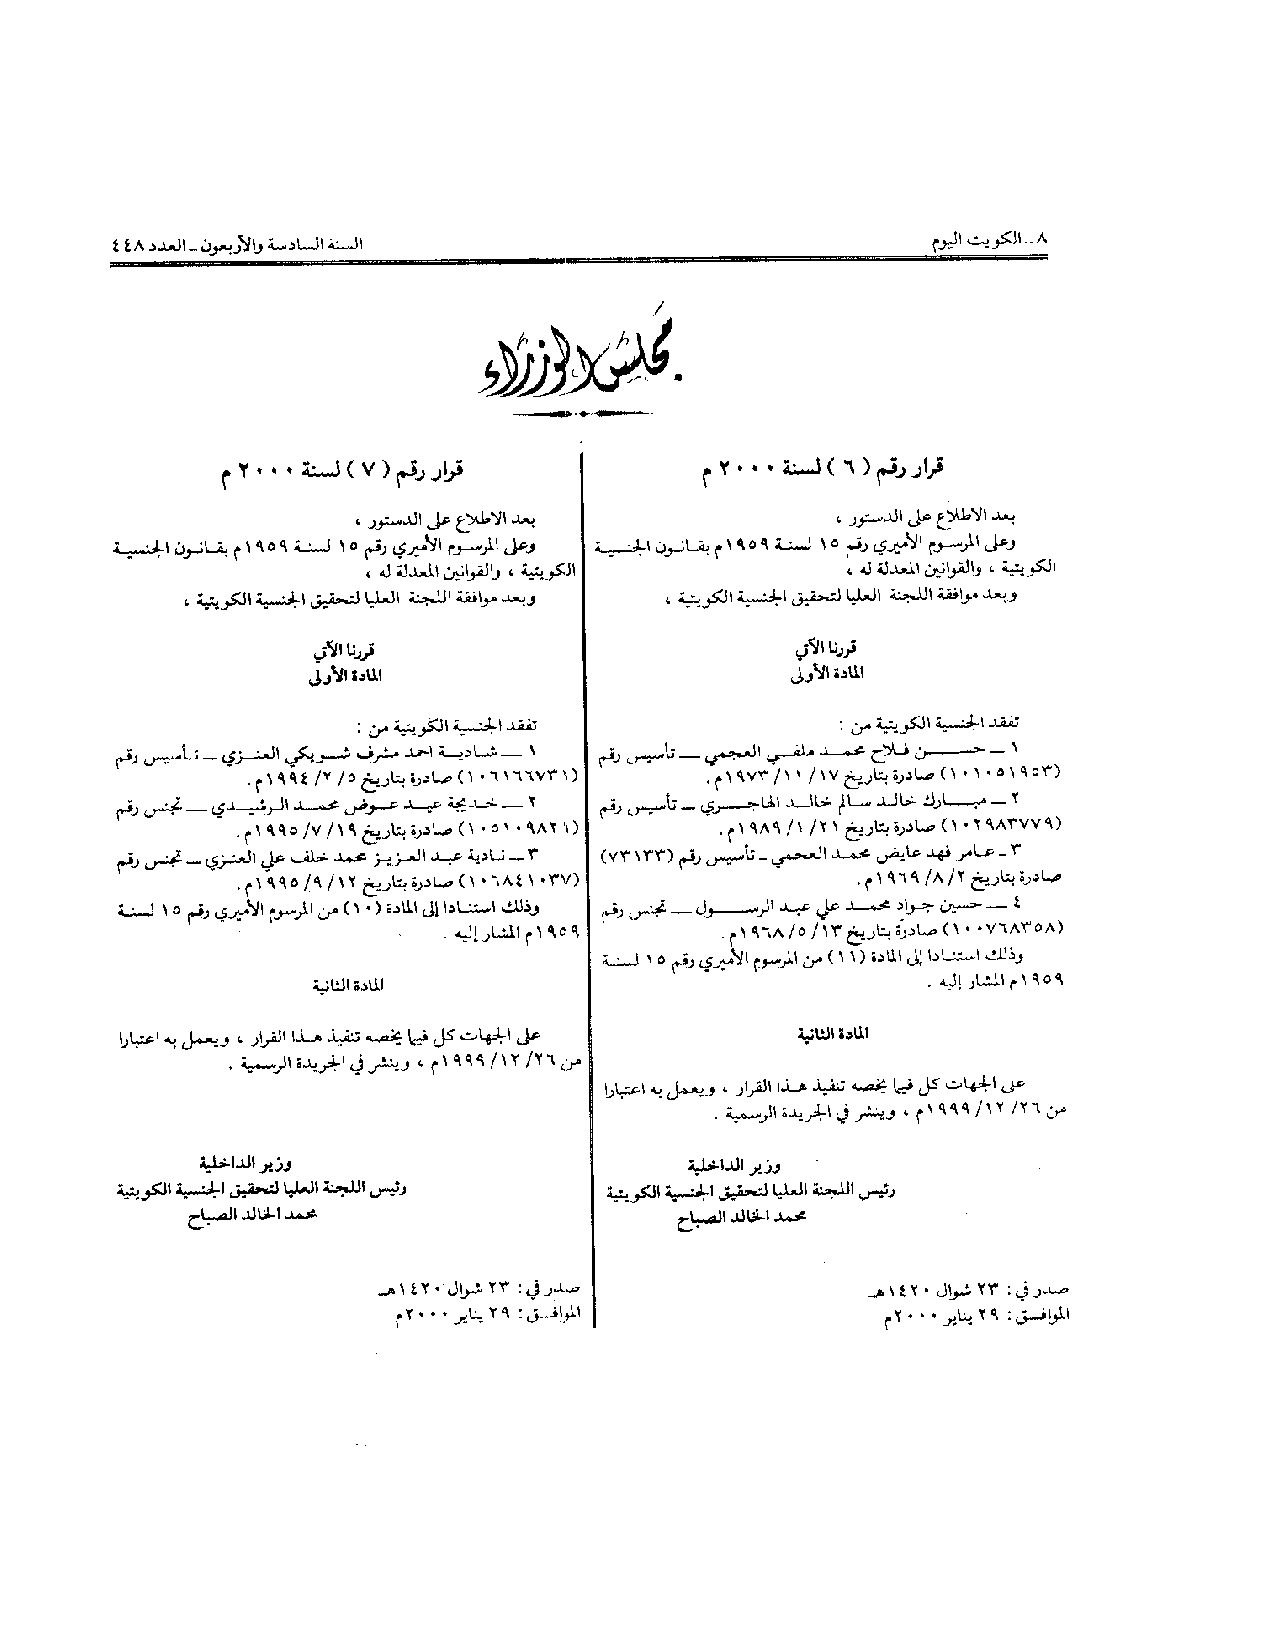 ٨ـ الكويت اليوم
السنة السادسة والأربعون ـ العدد ٤٤٨
مجلس الوزراء
قرار رقم (٦) لسنة ٢٠٠٠م
بعد الاطلاع على الدستور ،
وعلى المرسوم الأميري رقم ١٥ لسنة ١٩٥٩م بقانون الجنسية
الكويتية ، والقوانين المعدلة له ،
وبعد موافقة اللجنة العليا لتحقيق الجنسية الكويتية ،
قررنا الآتي
المادة الأولى
تفقد الجنسية الكويتية من :
١ ـ حسن فلاح محمد ملفي العجمي ـ تأسيس رقم
(١٠١٠٥١٩٥٣) صادرة بتاريخ ١٧/ ١٠/ ١٩٧٣م.
٢ ـ مبارك خالد سالم خالد الهاجري ـ تأسيس رقم
(١٠٢٩٨٣٧٧٩) صادرة بتاريخ ٢١/ ١/ ١٩٨٩م.
٣ ـ عامر فهد عايض محمد العجمي ـ تأسيس رقم (٧٣١٣٣)
صادرة بتاريخ ٢/ ٨/ ١٩٦٩م.
٤ ـ حسين جواد محمد علي عبد الرسول ـ تجنس رقم
(١٠٠٧٦٨٣٥٨) صادرة بتاريخ ١٣/ ٥/ ١٩٦٨م.
وذلك استنادا إلى المادة (١١) من المرسوم الأميري رقم ١٥ لسنة
١٩٥٩م المشار إليه .
المادة الثانية
على الجهات كل فيما يخصه تنفيذ هذا القرار ، ويعمل به اعتبارا
من ٢٦/ ١٢/ ١٩٩٩م ، وينشر في الجريدة الرسمية .
وزير الداخلية
رئيس اللجنة العليا لتحقيق الجنسية الكويتية
محمد الخالد الصباح
صدر في : ٢٣ شوال ١٤٢٠هـ
الموافق : ٢٩ يناير ٢٠٠٠م
قرار رقم (٧) لسنة ٢٠٠٠م
بعد الاطلاع على الدستور ،
وعلى المرسوم الأميري رقم ١٥ لسنة ١٩٥٩م بقانون الجنسية
الكويتية ، والقوانين المعدلة له ،
وبعد موافقة اللجنة العليا لتحقيق الجنسية الكويتية ،
قررنا الآتي
المادة الأولى
تفقد الجنسية الكويتية من :
١ ـ شادية احمد مشرف شويكي العنزي ـ تأسيس رقم
(١٠٦١٦٦٧٣١) صادرة بتاريخ ٥/ ٢/ ١٩٩٤م.
٢ ـ خديجة عيد عوض محمد الرشيدي ـ تجنس رقم
(١٠٥١٠٩٨٢١) صادرة بتاريخ ١٩/ ٧/ ١٩٩٥م.
٣ ـ نادية عبد العزيز محمد خلف علي العنزي ـ تجنس رقم
(١٠٦٨٤١٠٣٧) صادرة بتاريخ ١٢/ ٩/ ١٩٩٥م.
وذلك استنادا إلى المادة (١٠) من المرسوم الأميري رقم ١٥ لسنة
١٩٥٩م المشار إليه .
المادة الثانية
على الجهات كل فيما يخصه تنفيذ هذا القرار ، ويعمل به اعتبارا
من ٢٦/ ١٢/ ١٩٩٩م ، وينشر في الجريدة الرسمية .
وزير الداخلية
رئيس اللجنة العليا لتحقيق الجنسية الكويتية
محمد الخالد الصباح
صدر في : ٢٣ شوال ١٤٢٠هـ
الموافق : ٢٩ يناير ٢٠٠٠م